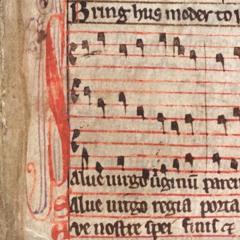 Bring hus moder to
Salue uirgo uirginū paren
Salue uirgo regia porta
Aue nostre spei finis &